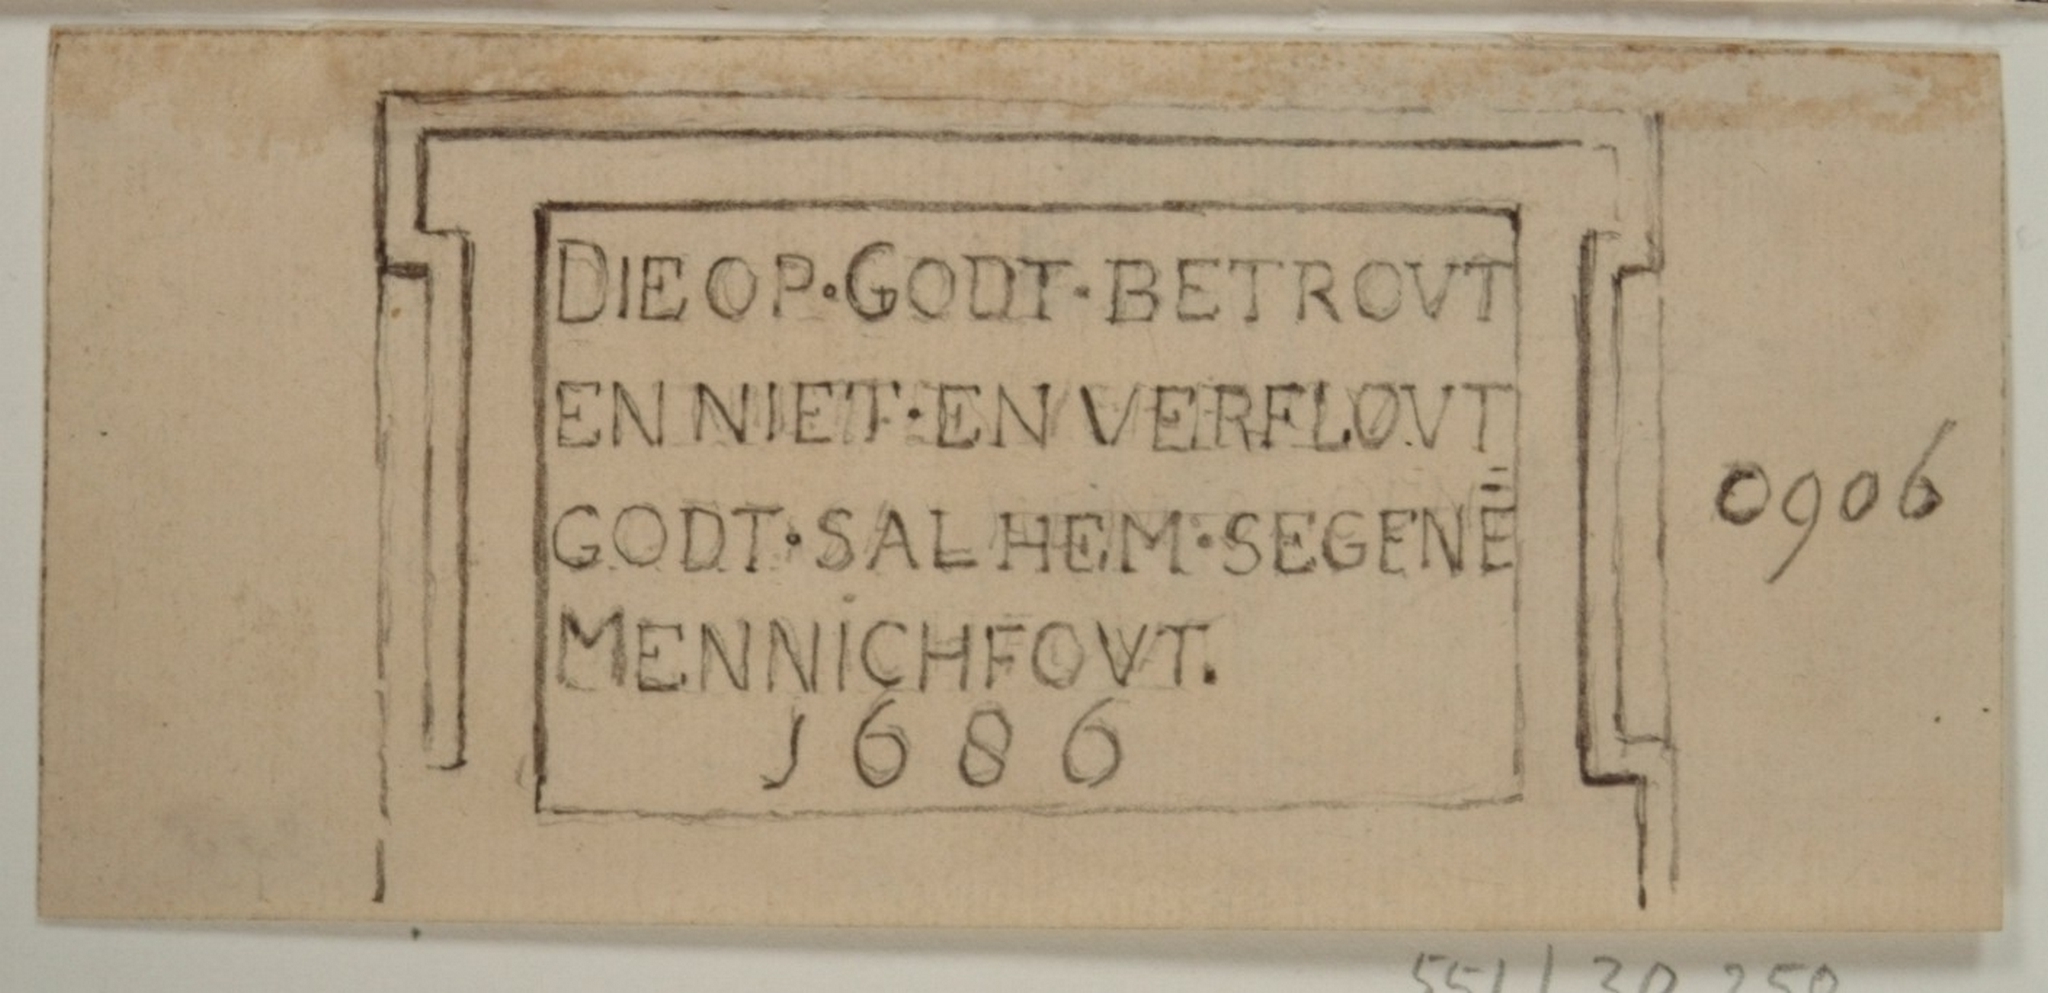 DIE OP·GODT·BETROVT
EN NIET·EN VERFLOVT
GODT·SAL HEM·SEGENĒ
MENNICHFOVT.
1686
0906